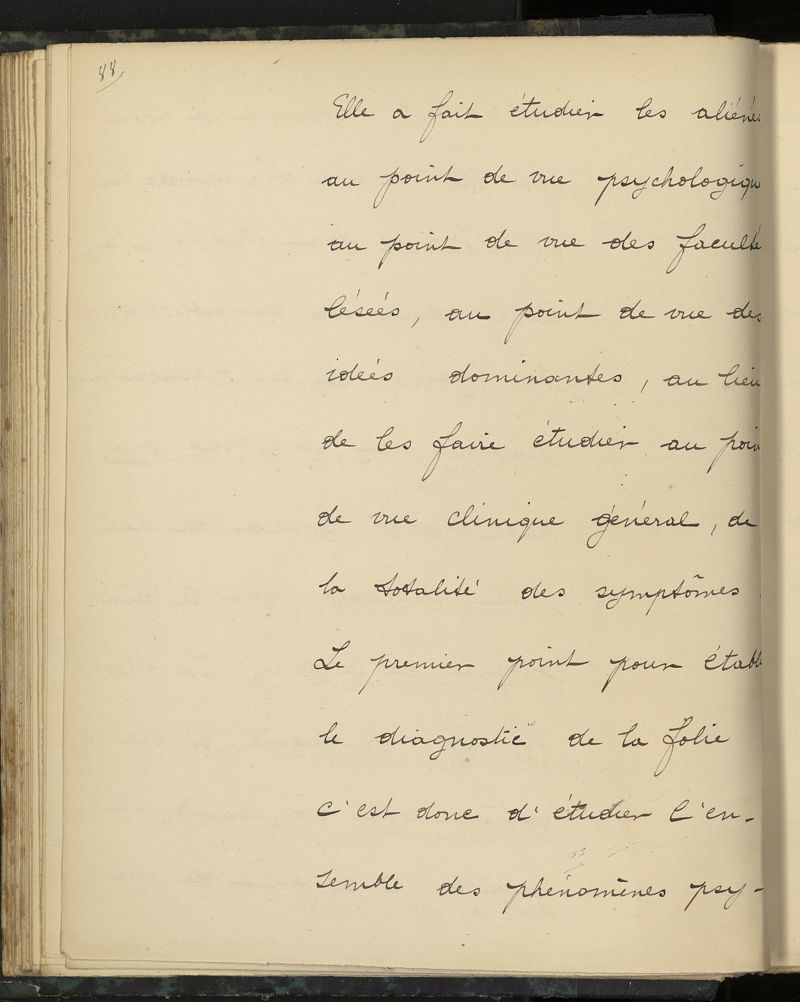 88
Elle a fait étudier les aliéné
au point de vue psychologiqu
au point de vue des faculté
léseés, au point de vue des
ideés dominantes, au lieu
de les faire étudier au poin
de vue clinique général, de
la totalité des symptômes.
Le premier point pour établ
le diagnostic de la folie
c'est donc d'étudier l'en-
semble des phénomènes psy-